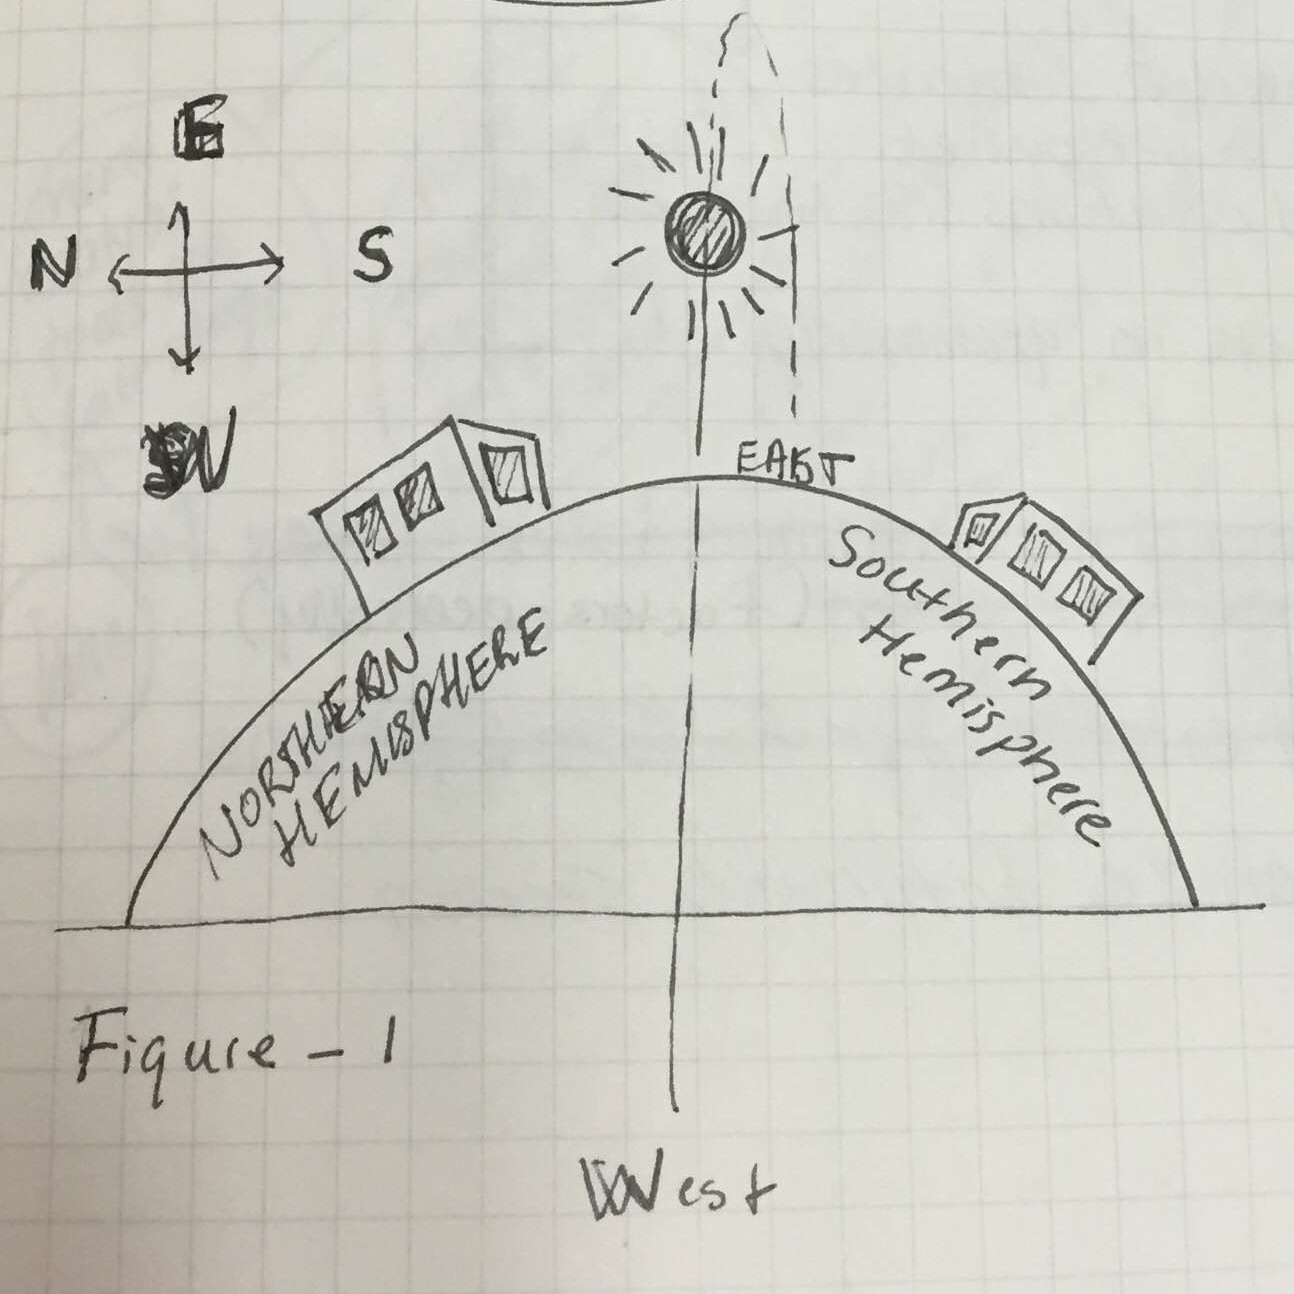 E
N
S
W
EAST
NORTHERN
HEMISPHERE
Southern
Hemisphere
Figure - 1
West